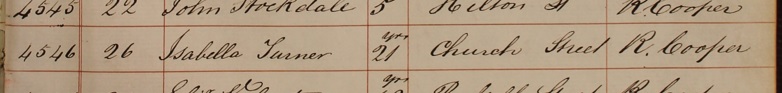 4545 22 John Stockdale 5 Hilton St R. Cooper
4546 26 Isabella Turner 21 yrs Church Street R. Cooper
yrs